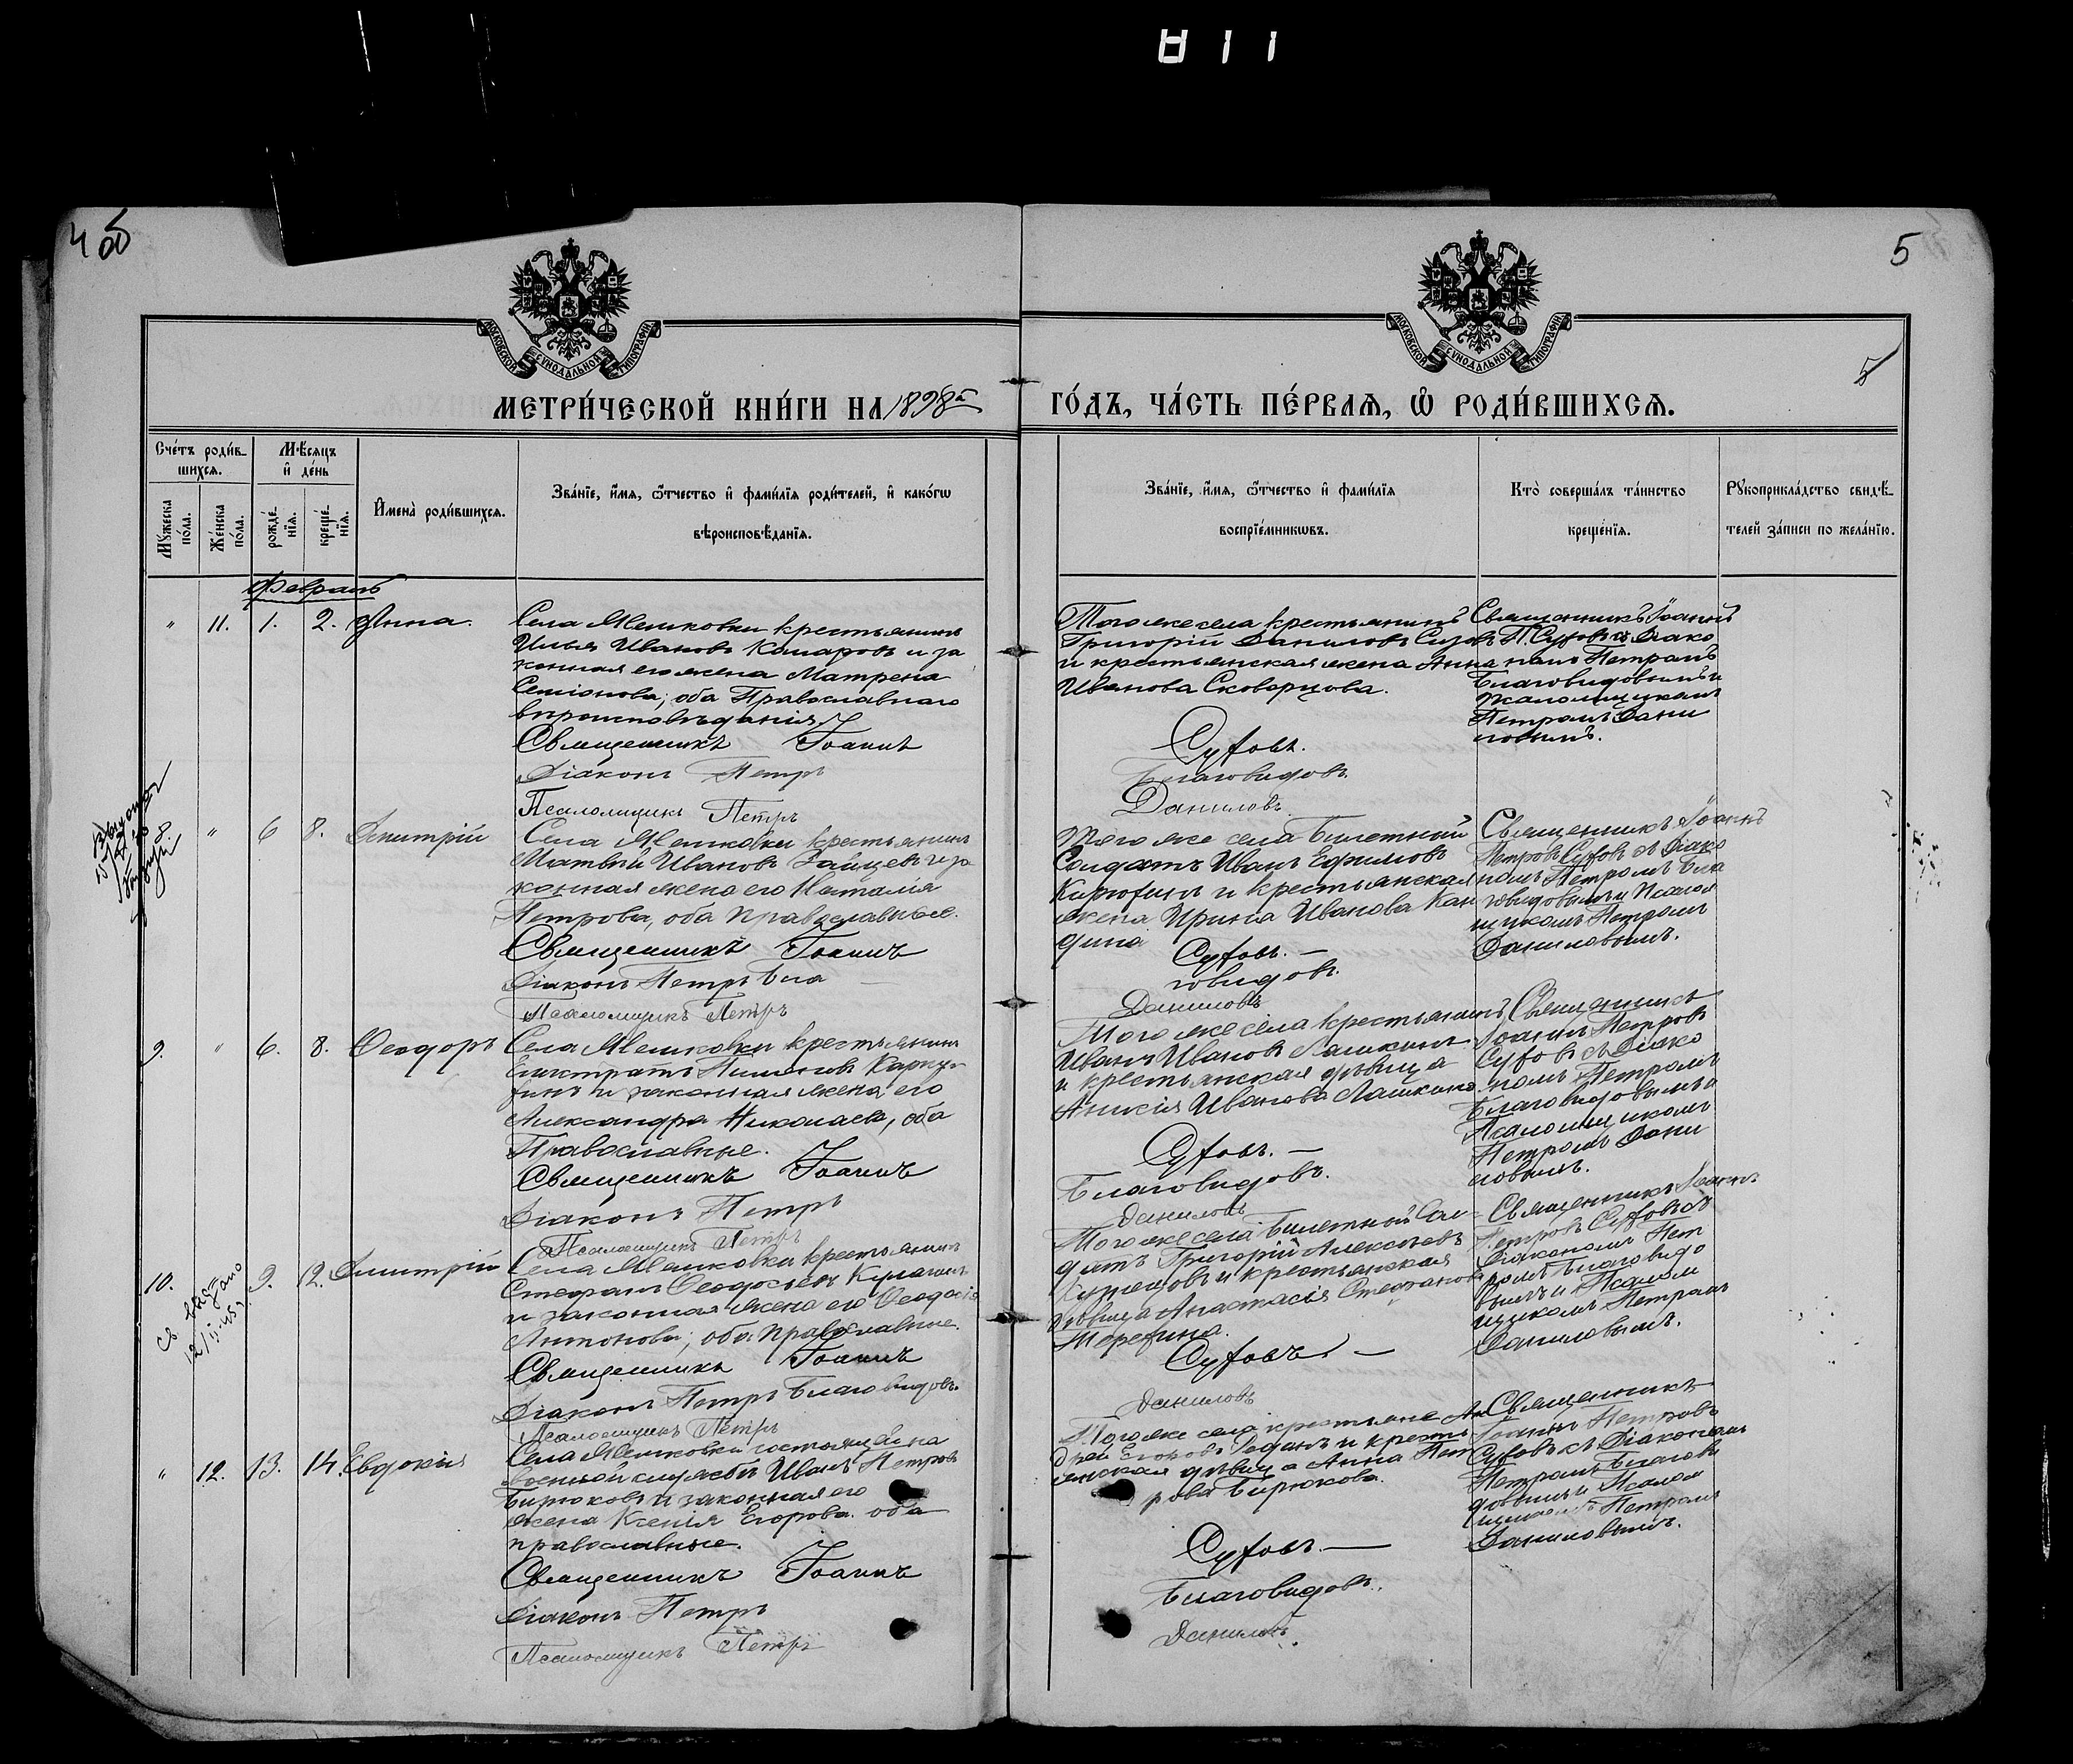 811
4 об
5
МОСКОВСКОЙ СѴНОДАЛЬНОЙ ТИПОГРАФІИ
МОСКОВСКОЙ СѴНОДАЛЬНОЙ ТИПОГРАФІИ
5
МЕТРИ́ЧЕСКОЙ КНИ́ГИ НА 1898й
ГО́ДЪ, ЧА́СТЬ ПЕ́РВАѦ, Ѽ РОДИ́ВШИХСѦ.
Сче́тъ роди́в-
шихсѧ.
Мѣ́сѧцъ
и҆ де́нь
Мꙋ́жеска
по́ла.
Же́нска
по́ла.
рожде́-
нїѧ.
креще́-
нїѧ.
И҆мена̀ роди́вшихсѧ.
Зва́нїе, и҆́мѧ, ѻ҆́тчество и҆ фами́лїѧ роди́телей, и҆ како́гѡ
вѣроисповѣ́данїѧ.
Зва́нїе, и҆́мѧ, ѻ҆́тчество и҆ фами́лїѧ
воспрїе́мникѡвъ.
Кто̀ соверша́лъ та́инство
креще́нїѧ.
Рꙋкоприкла́дство свидѣ́-
телей за́писи по жела́нїю.
Февраль
" 11. 1. 2. Анна.
Села Мешковки крестьянинъ
Илья Ивановъ Комаровъ и за
конная его жена Матрена
Семіонова; оба Православнаго
вѣроисповѣданія
Священникъ Іоаннъ
Діаконъ Петръ
Псаломщикъ Петръ
Тогоже села крестьянинъ
Григорій Даниловъ Сизовъ
и крестьянская жена Анна
Иванова Скворцова.
Суфовъ.
Благовидовъ
Даниловъ
Священникъ Іоаннъ
П. Суфовъ съ Діако
номъ Петромъ
Благовидовымъ и
псаломщикомъ
Петромъ Дани
ловымъ.
" 6 8. Димитрій
Села Мешковки крестьянинъ
Матвѣй Ивановъ Зайцевъ и за
конная жена его Наталія
Петрова, оба православные.
Священникъ Іоаннъ
Діаконъ Петръ Бла
Псаломщикъ Петръ
Того же села билетный
Солдатъ Иванъ Ефимовъ
и крестьянская
жена Ирина Иванова Кан
дина
Суфовъ. —
говидовъ.
Даниловъ
Священникъ Іоаннъ
Петровъ Суфовъ съ Діако
номъ Петромъ Бла
говидовымъ и Псалом
щикомъ Петромъ
Даниловымъ.
9. " 6. 8. Ѳеодоръ
Села Мешковки крестьянинъ
и законная жена его
Александра Николаева, оба
Православные.
Священникъ Іоаннъ
Діаконъ Петръ
Псаломщикъ Петръ
Того же села крестьянинъ
Иванъ Ивановъ Лашкинъ
и крестьянская дѣвица
Анисія Иванова Лашкина
Суфовъ. —
Благовидовъ.
Даниловъ
Священникъ
Іоаннъ Петровъ
Суфовъ съ Діако
номъ Петромъ
Благовидовымъ и
Псаломщикомъ
Петромъ Дани
ловымъ.
10. " 9. 12. Димитрій
Села Мешковки крестьянинъ
Стефанъ Ѳеодосьевъ Кулагинъ
и законная жена его Ѳеодосія
Антонова; оба православные.
Священникъ Іоаннъ
Діаконъ Петръ Благовидовъ.
Псаломщикъ Петръ
Тогоже села билетной Сол-
датъ Григорій Алексѣевъ
и крестьянская
дѣвица Анастасія Стефанова
Суфовъ —
Даниловъ
Священникъ Іоаннъ
Петровъ Суфовъ съ
Діакономъ Пет
ромъ Благовидо
вымъ и Псалом
щикомъ Петромъ
Даниловымъ.
" 12. 13. 14. Евдокія
Села Мешковки состоящій на
военной службѣ Иванъ Петровъ
Бирюковъ и законная его
жена Ксенія Егорова оба
православные.
Священникъ Іоаннъ
Діаконъ Петръ
Псаломщикъ Петръ
Тогоже села крестьяне Ан
дрей Егоровъ и кресть
янская дѣвица Анна Пет
рова Бирюкова.
Суфовъ. —
Благовидовъ.
Даниловъ
Священникъ
Іоаннъ Петровъ
Суфовъ съ Діакономъ
Петромъ Благови
довымъ и Псалом
щикомъ Петромъ
Даниловымъ.